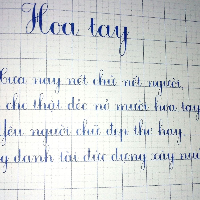 Hoa tay
xưa nay nét chữ nết người
chu thật dẻo nở mười hoa tay
yêu người chữ đẹp thơ hay
danh tài đức dựng xây